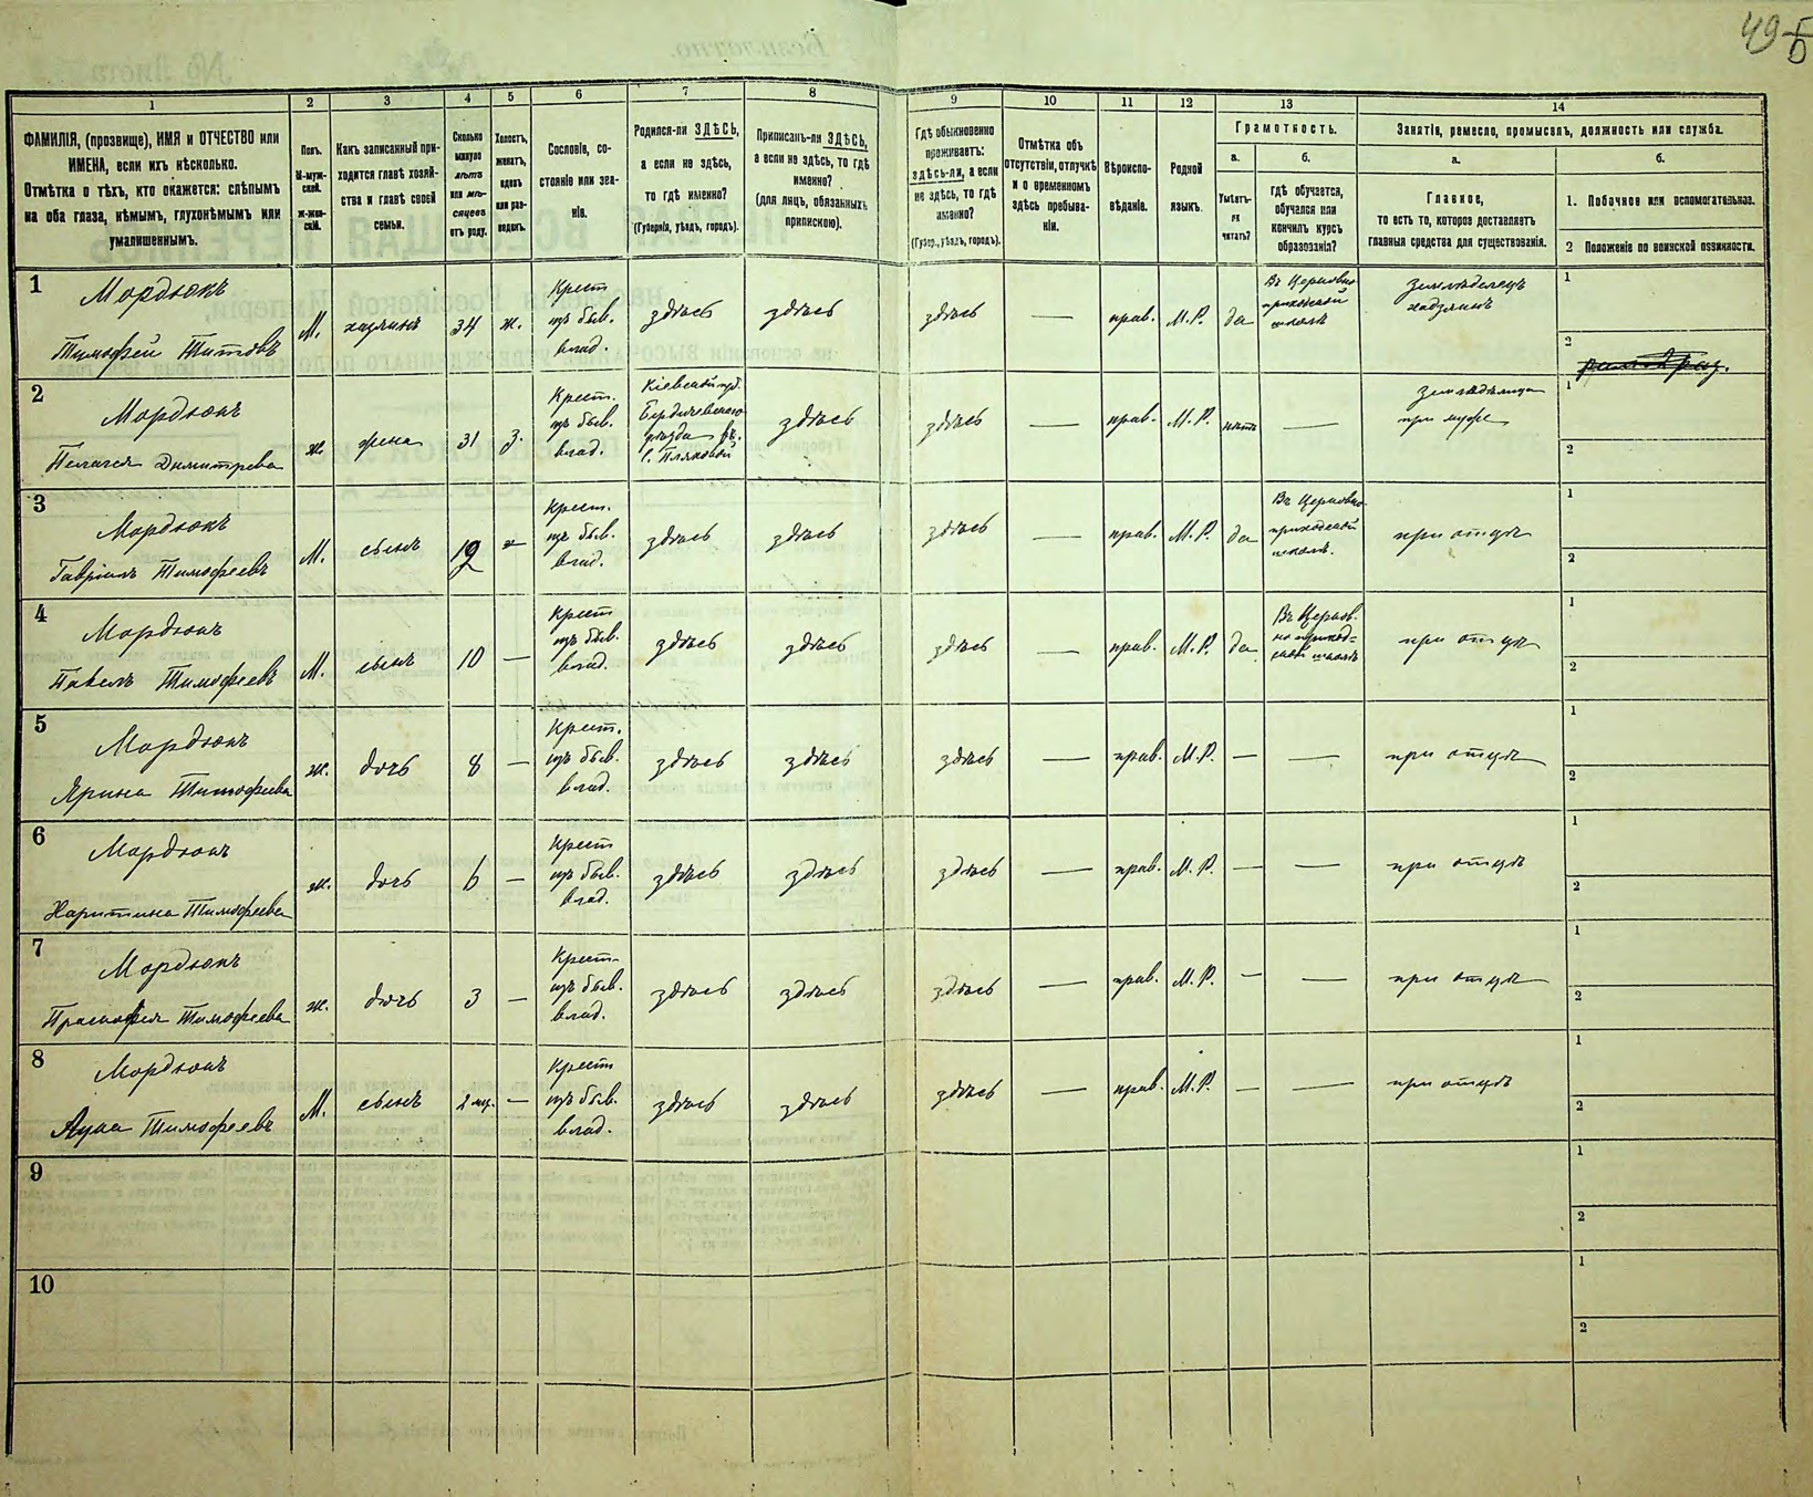 1 2 3 4 5 6 7 8 9 10 11 12 13 14
ФАМИЛІЯ, (прозвище), ИМЯ и ОТЧЕСТВО или
ИМЕНА, если ихъ нѣсколько.
Отмѣтка о тѣхъ, кто окажется: слѣпымъ
на оба глаза, нѣмымъ, глухонѣмымъ или
умалишеннымъ.
Полъ.
М-муж-
ской.
Ж-жен-
скій.
Какъ записанный при-
ходится главѣ хозяй-
ства и главѣ своей
семьи.
Сколько
минуло
лѣтъ
или мѣ-
сяцевъ
отъ роду.
Холостъ,
женатъ,
вдовъ
или раз-
веденъ.
Сословіе, со-
стояніе или зва-
ніе.
Родился-ли ЗДѢСЬ,
а если не здѣсь,
то гдѣ именно?
(Губернія, уѣздъ, городъ).
Приписанъ-ли ЗДѢСЬ,
а если не здѣсь, то гдѣ
именно?
(для лицъ, обязанныхъ
припискою).
Гдѣ обыкновенно
проживаетъ:
здѣсь-ли, а если
не здѣсь, то гдѣ
именно?
(Губер., уѣздъ, городъ).
Отмѣтка объ
отсутствіи, отлучкѣ
и о временномъ
здѣсь пребыва-
ніи.
Вѣроиспо-
вѣданіе.
Родной
языкъ.
Грамотность.
а.
Умѣетъ-
ли
читать?
б.
гдѣ обучается,
обучался или
кончилъ курсъ
образованія?
Занятіе, ремесло, промыселъ, должность или служба.
а.
Главное,
то есть то, которое доставляетъ
главныя средства для существованія.
б.
1. Побочное или вспомогательное.
2 Положеніе по воинской повинности.
1
Мордюкъ
Тимофей Титовъ
М.
хазяинъ
34
ж.
Крест
изъ быв.
влад.
здѣсь
здѣсь
здѣсь
—
прав.
М.Р.
да
Въ Церковно
приходской
школѣ
Земледелецъ
хадзяинъ
1
2
2
Мордюкъ
Пелагея Димитрева
ж.
жена
31
З.
Крест.
изъ быв.
влад.
Кіевской губ.
Бердичевскаго
уѣзда въ.
с.
здѣсь
здѣсь
—
прав.
М.Р.
нѣтъ
—
при мужѣ
1
2
3
Мордюкъ
Гавріилъ Тимофеевъ
М.
сынъ
12
Крест.
изъ быв.
влад.
здѣсь
здѣсь
здѣсь
—
прав.
М.Р.
да
Въ Церковно
приходской
школѣ.
при отцѣ
1
2
4
Мордюкъ
Павелъ Тимофеевъ
М.
сынъ
10
—
Крест
изъ быв.
влад.
здѣсь
здѣсь
здѣсь
—
прав.
М.Р.
да
Въ Церков.
но приход=
ской школѣ
при отцѣ
1
2
5
Мордюкъ
Ярина Тимофеева
ж.
дочь
8
—
Крест.
изъ быв.
влад.
здѣсь
здѣсь
здѣсь
—
прав.
М.Р.
—
—
при отцѣ
1
2
6
Мордюкъ
Харитина Тимофеева
ж.
дочь
6
—
Крест
изъ быв.
влад.
здѣсь
здѣсь
здѣсь
—
прав.
М.Р.
—
—
при отцѣ
1
2
7
Мордюкъ
Праскофея Тимофеева
ж.
дочь
3
—
Крест
изъ быв.
влад.
здѣсь
здѣсь
здѣсь
—
прав.
М.Р.
—
—
при отцѣ
1
2
8
Мордюкъ
Лука Тимофеевъ
М.
сынъ
2 мц.
—
Крест
изъ быв.
влад.
здѣсь
здѣсь
здѣсь
—
прав.
М.Р.
—
—
при отцѣ
1
2
9
1
2
10
1
2